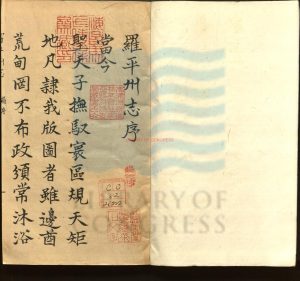 羅平州志序
當今
聖天子撫馭寰區規天矩
地凡隷我版圖者雖邊酋
荒甸罔不布政頒常沐浴
LIBRARY OF
CONGRESS